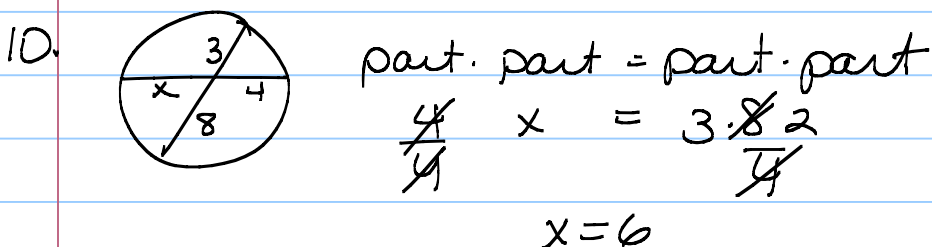 10.
3
x 4
8
part · part = part · part
4 x = 3 · 8 2
4 4
x = 6